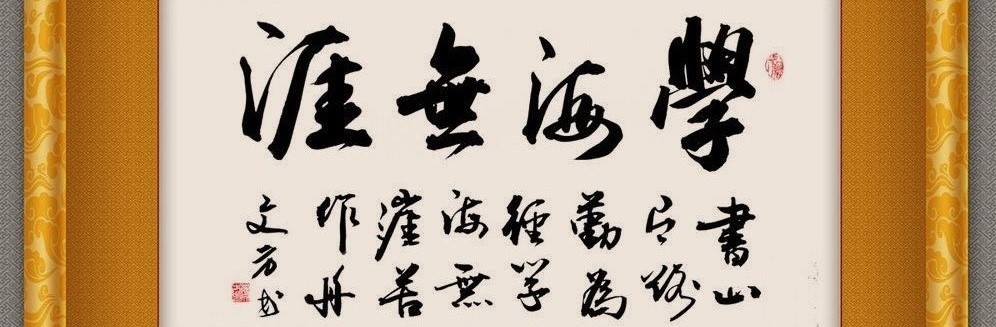 學海無涯
書山
有路
勤為
徑学
海無
涯苦
作舟
文方书